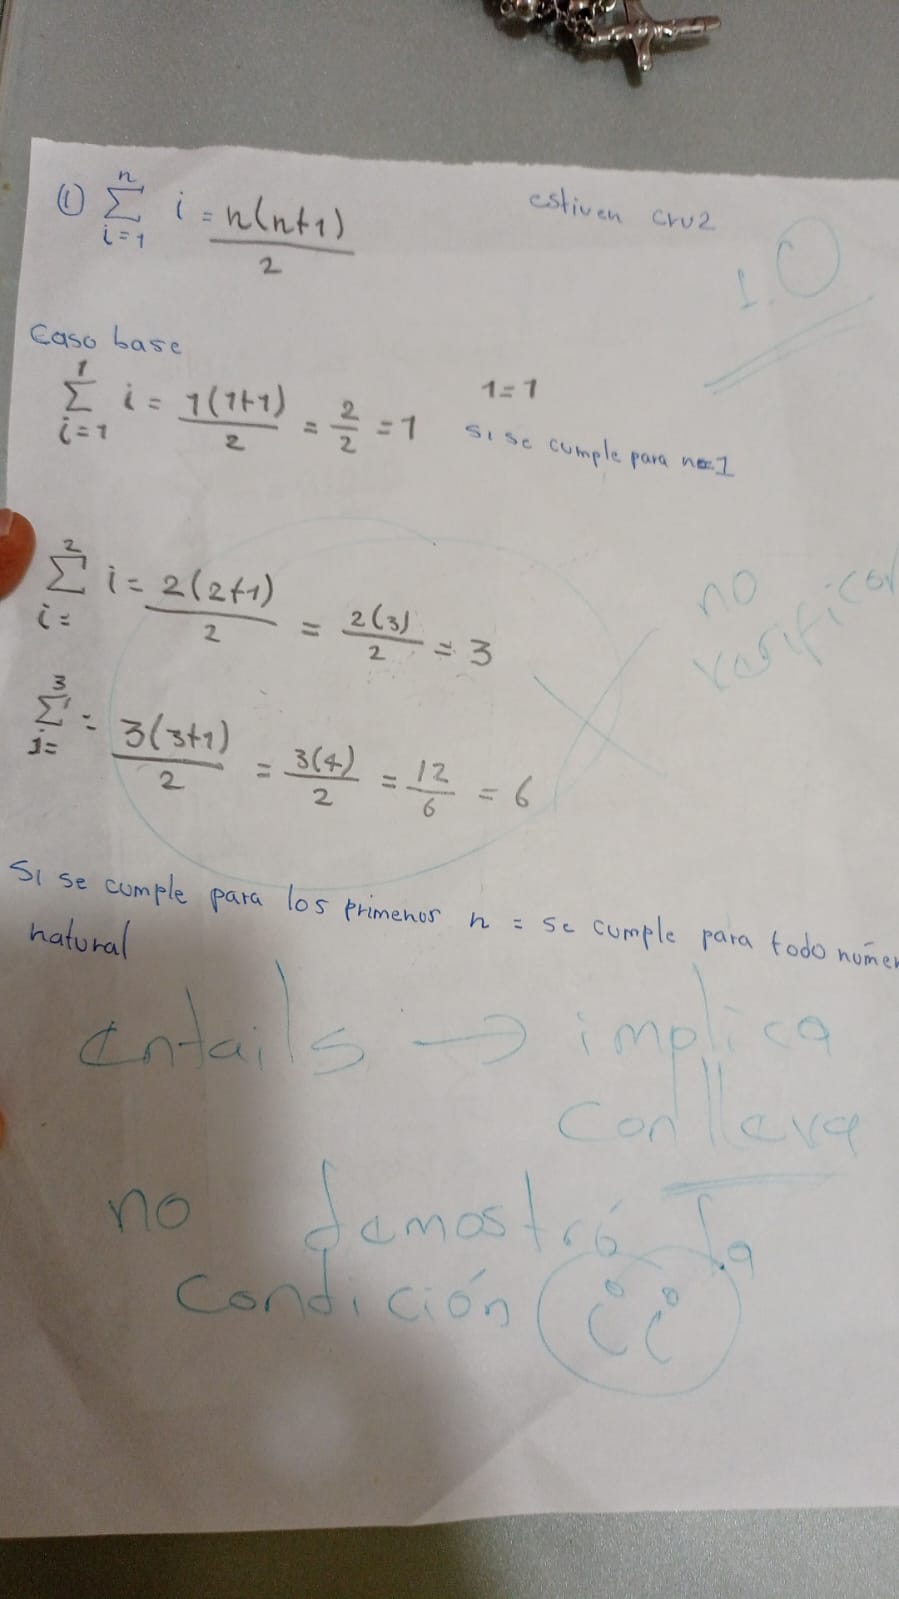 ① n∑i=1 i = n(n+1)/2
estiven cruz
1.0
Caso base
1∑i=1 i = 1(1+1)/2 = 2/2 = 1
1=1
si se cumple para n=1
2∑i= i = 2(2+1)/2 = 2(3)/2 = 3
no
verificar
3∑i= = 3(3+1)/2 = 3(4)/2 = 12/6 = 6
Si se cumple para los primeros n = se cumple para todo númer
natural
entails → implica
conlleva
no demostró la
condición (ii)